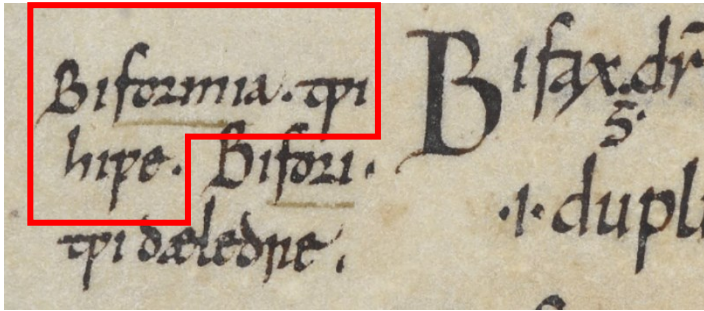 Biformia. tƿi
hiƿe. Bifori.
tƿi dæledre.
Bifax. dr̄
g̅.
.i. dupl